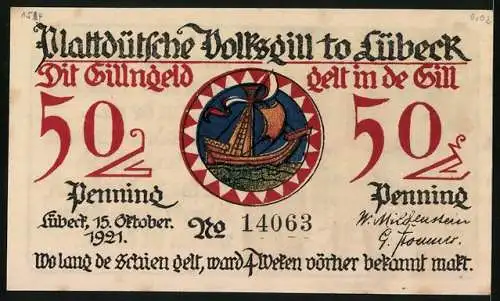 Plattdütsche Volksgill to Lübeck
Dit Gillngeld gelt in de Gill
50 50
Penning Penning
Lübeck, 15. Oktober.
1921.
No 14063
Wo lang de Schien gelt, ward 4 Weken vörher bekannt makt.